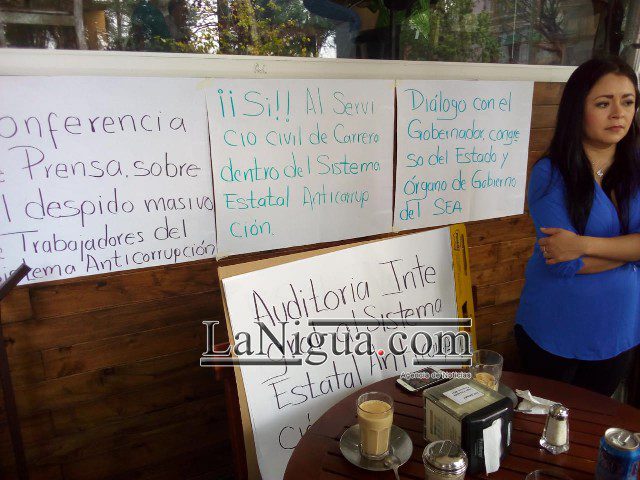 onferencia
e Prensa. sobre
l despido masivo
e Trabajadores del
istema Anticorrupción
¡¡Si!! Al Servi
cio civil de Carrera
dentro del Sistema
Estatal Anticorrup
ción.
Diálogo con el
Gobernador, congre
so del Estado y
Órgano de Gobierno
del SEA
Auditoría Inte
gral al Sistema
Estatal Anti
ci
LaNigua.com
Agencia de Noticias